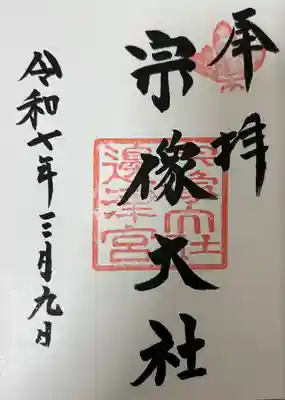 奉拝
宗像大社
宗像大社
邊津宮
令和七年三月九日